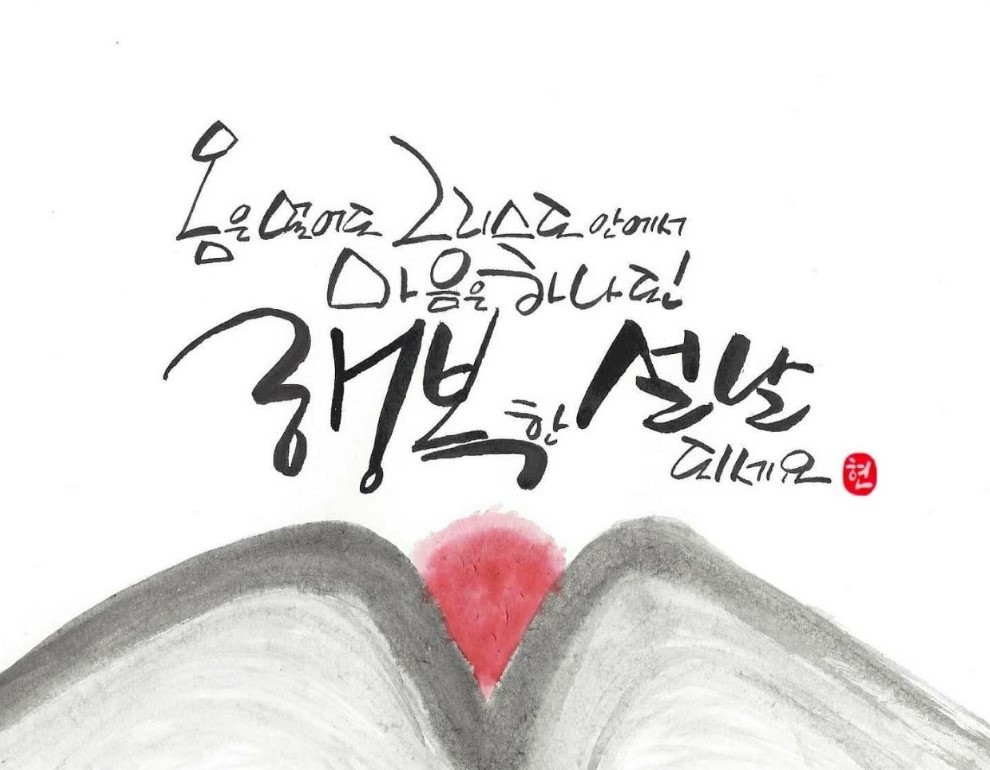 몸은 멀어도 그리스도 안에서
마음은 하나된
행복한 설날
되세요 현